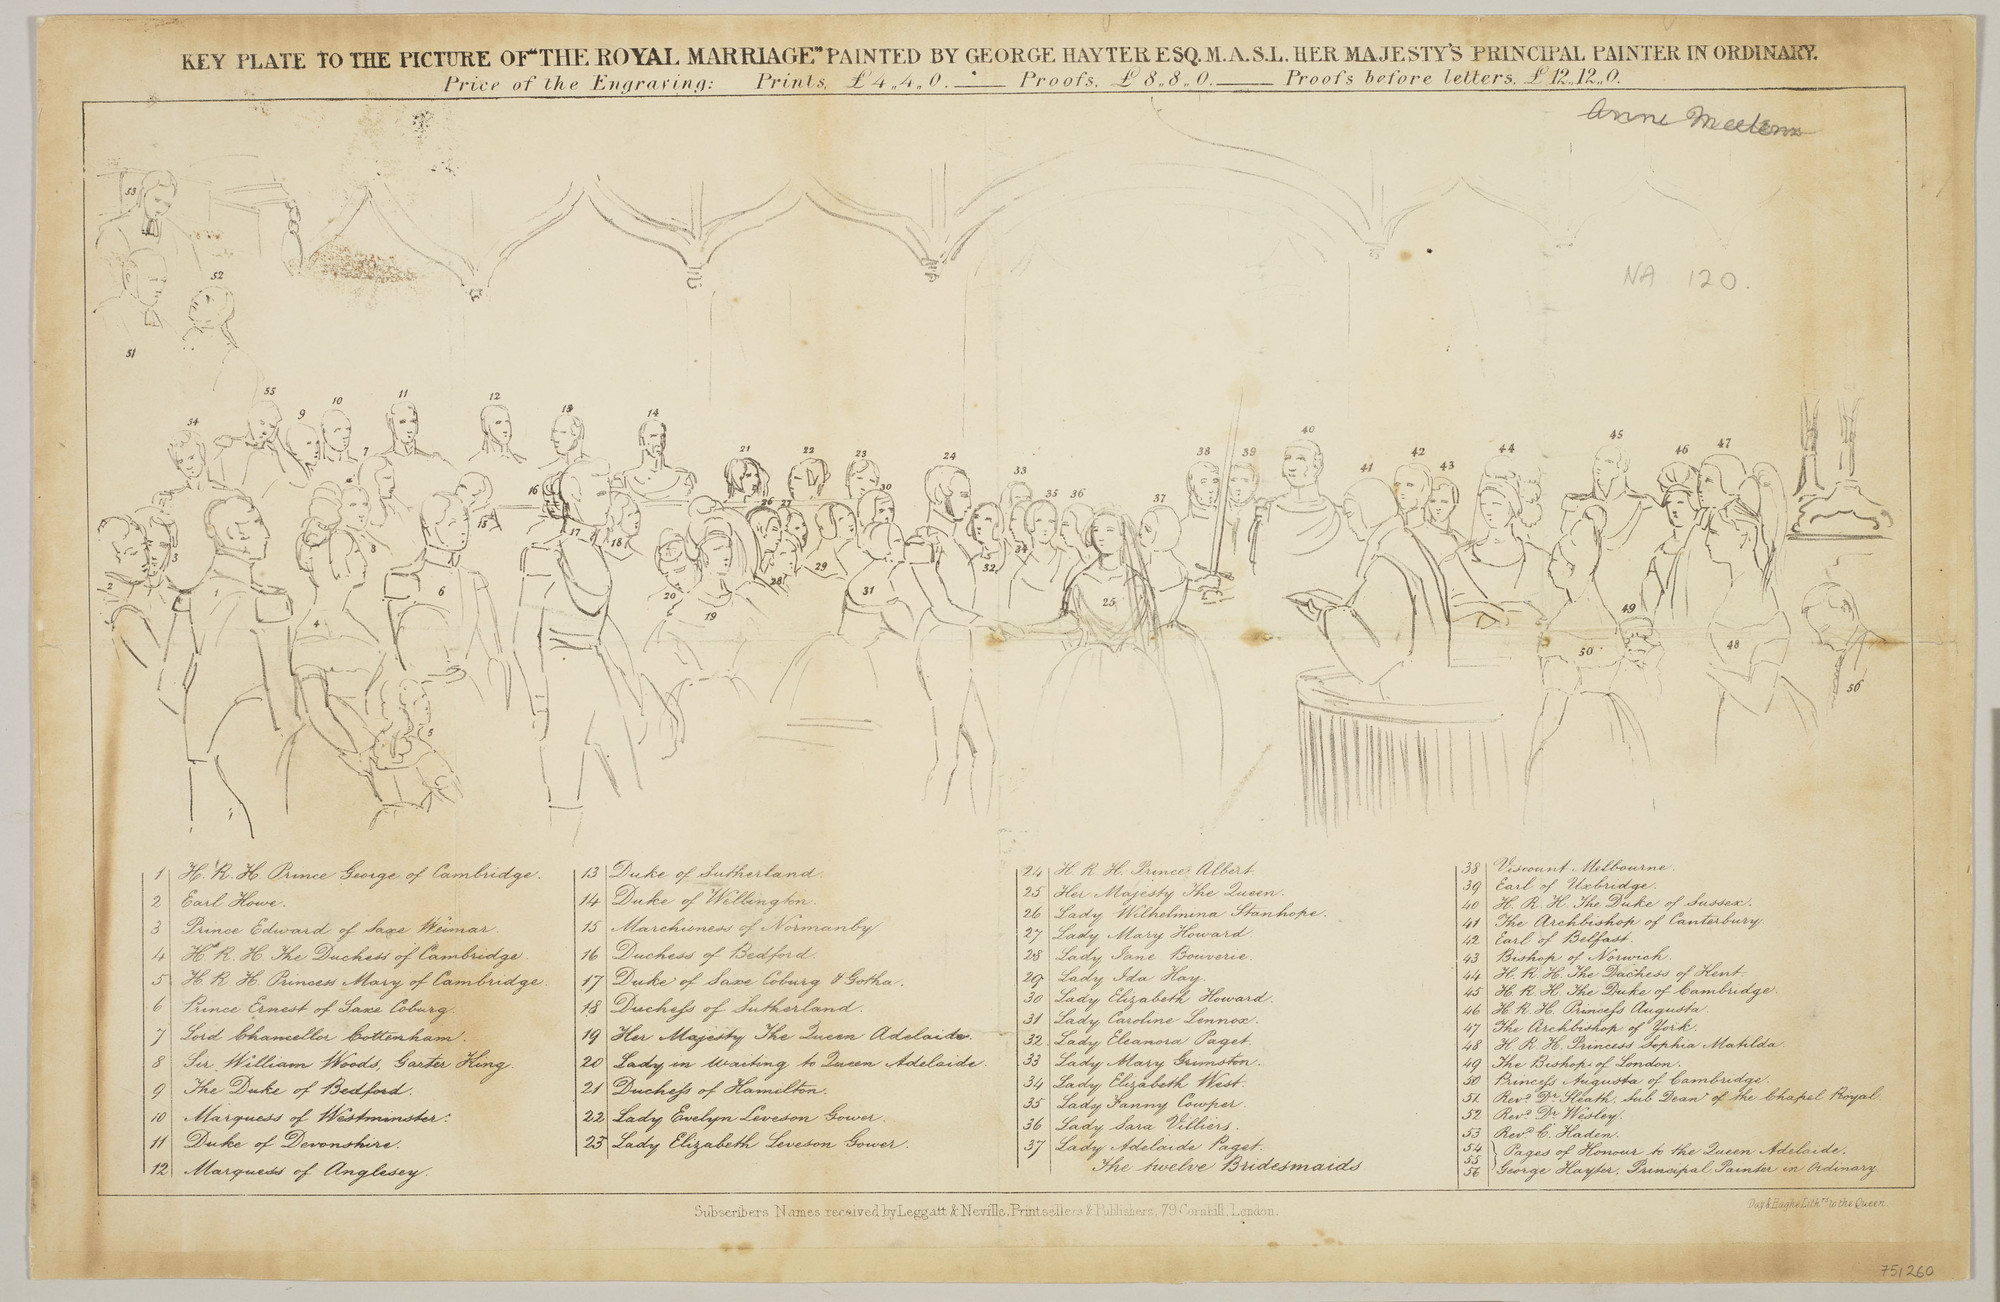 KEY PLATE TO THE PICTURE OF "THE ROYAL MARRIAGE" PAINTED BY GEORGE HAYTER ESQ. M.A.S.L. HER MAJESTY'S PRINCIPAL PAINTER IN ORDINARY.
Price of the Engraving: Prints, £4,,4,,0. — Proofs, £8,,8,,0. — Proofs before letters, £12,,12,,0.
Anne
NA 120.
53
52
51
55
54
9
10
11
12
13
14
7
21
22
23
24
33
35
36
37
38
39
40
41
42
43
44
45
46
47
16
15
17
18
26
27
30
3
2
8
1
6
4
20
19
28
29
31
32
34
25
49
50
48
56
5
1 H. R. H. Prince George of Cambridge.
2 Earl Howe.
3 Prince Edward of Saxe Weimar.
4 H. R. H. The Duchess of Cambridge.
5 H. R. H. Princess Mary of Cambridge.
6 Prince Ernest of Saxe Coburg.
7 Lord Chancellor Cottenham.
8 Sir William Woods, Garter King.
9 The Duke of Bedford.
10 Marquess of Westminster.
11 Duke of Devonshire.
12 Marquess of Anglesey.
13 Duke of Sutherland.
14 Duke of Wellington.
15 Marchioness of Normanby.
16 Duchess of Bedford.
17 Duke of Saxe Coburg & Gotha.
18 Duchess of Sutherland.
19 Her Majesty The Queen Adelaide.
20 Lady in waiting to Queen Adelaide.
21 Duchess of Hamilton.
22 Lady Evelyn Leveson Gower.
23 Lady Elizabeth Leveson Gower.
24 H. R. H. Prince Albert.
25 Her Majesty The Queen.
26 Lady Wilhelmina Stanhope.
27 Lady Mary Howard.
28 Lady Jane Bouverie.
29 Lady Ida Hay.
30 Lady Elizabeth Howard.
31 Lady Caroline Lennox.
32 Lady Eleanora Paget.
33 Lady Mary Grimston.
34 Lady Elizabeth West.
35 Lady Fanny Cowper.
36 Lady Sara Villiers.
37 Lady Adelaide Paget.
The twelve Bridesmaids
38 Viscount Melbourne.
39 Earl of Uxbridge.
40 H. R. H. The Duke of Sussex.
41 The Archbishop of Canterbury.
42 Earl of Belfast.
43 Bishop of Norwich.
44 H. R. H. The Duchess of Kent.
45 H. R. H. The Duke of Cambridge.
46 H. R. H. Princess Augusta.
47 The Archbishop of York.
48 H. R. H. Princess Sophia Matilda.
49 The Bishop of London.
50 Princess Augusta of Cambridge.
51 Revd. Dr. Sleath, Sub Dean of the Chapel Royal.
52 Revd. Dr. Wesley.
53 Revd. C. Haden.
54
55 } Pages of Honour to the Queen Adelaide.
56 George Hayter, Principal Painter in Ordinary.
Subscribers Names received by Leggatt & Neville, Printsellers & Publishers, 79, Cornhill, London.
Day & Haghe Lithrs. to the Queen.
751260